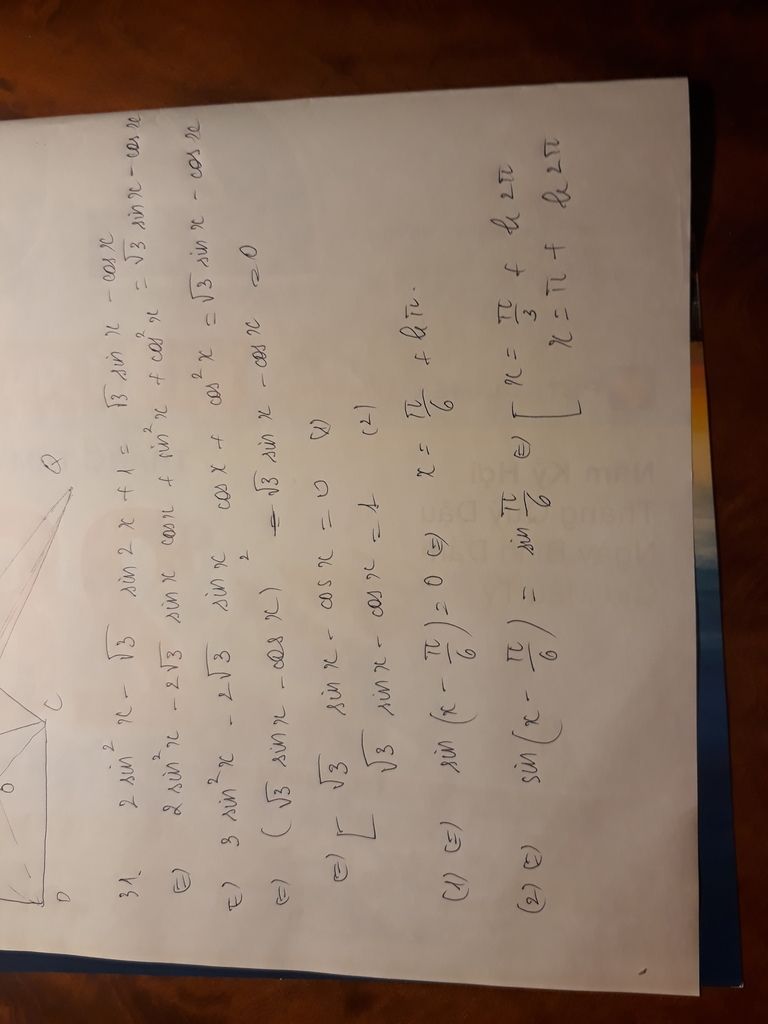 Q
O
D C
31. 2 sin² x - √3 sin 2x + 1 = √3 sin x - cos x
(=) 2 sin² x - 2√3 sin x cos x + sin² x + cos² x = √3 sin x - cos x
(=) 3 sin² x - 2√3 sin x cos x + cos² x = √3 sin x - cos x
(=) (√3 sin x - cos x)² = √3 sin x - cos x = 0
(=) [ √3 sin x - cos x = 0 (1)
√3 sin x - cos x = 1 (2)
(1) (=) sin(x - π/6) = 0 (=) x = π/6 + kπ.
(2) (=) sin(x - π/6) = sin π/6 (=) [ x = π/3 + k2π
x = π + k2π
Năm Kỷ Hợi